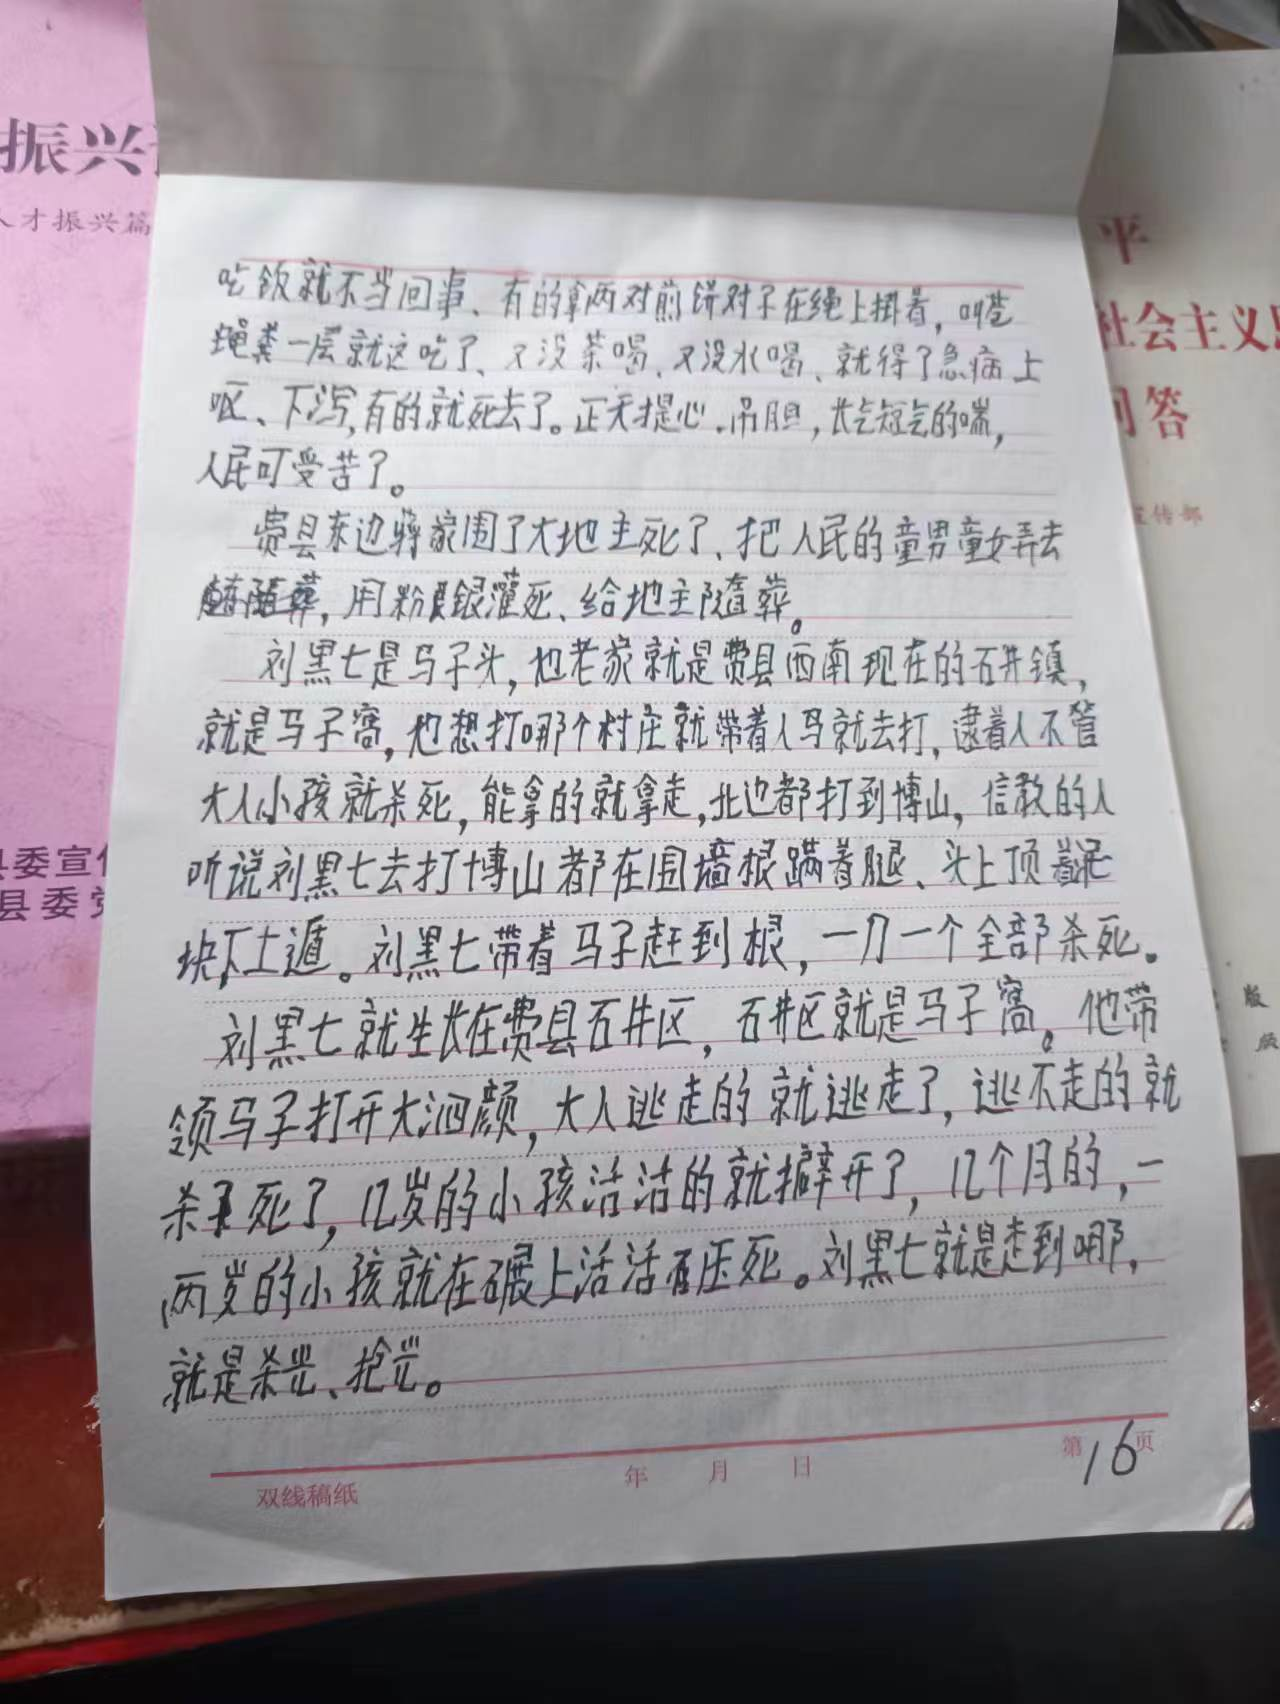 振兴
人才振兴篇
县委宣传
县委党
平
社会主义思
问答
宣传部
版
版
吃饭就不当回事、有的拿两对煎饼对子在绳上掛着，叫苍
蝇粪一层就这吃了、又没茶喝、又没水喝、就得了急病上
呕、下泻，有的就死去了。正天提心．吊胆，长气短气的喘，
人民可受苦了。
费县东边蒋家围了大地主死了、把人民的童男童女弄去
随葬，用粉银灌死、给地主随葬。
刘黑七是马子头，他老家就是费县西南现在的石井镇，
就是马子窝，他想打哪个村庄就带着人马就去打，逮着人不管
大人小孩就杀死，能拿的就拿走，北边都打到博山，信教的人
听说刘黑七去打博山都在围墙根蹒着腿、头上顶着泥
块，下土遁。刘黑七带着马子赶到根，一刀一个全部杀死。
刘黑七就生长在费县石井区，石井区就是马子窝。他带
领马子打开大泗颜，大人逃走的就逃走了，逃不走的就
杀死了，几岁的小孩活活的就擗开了，几个月的，一
两岁的小孩就在碾上活活压死。刘黑七就是走到哪，
就是杀光、抢光。
双线稿纸
年 月 日
第16页